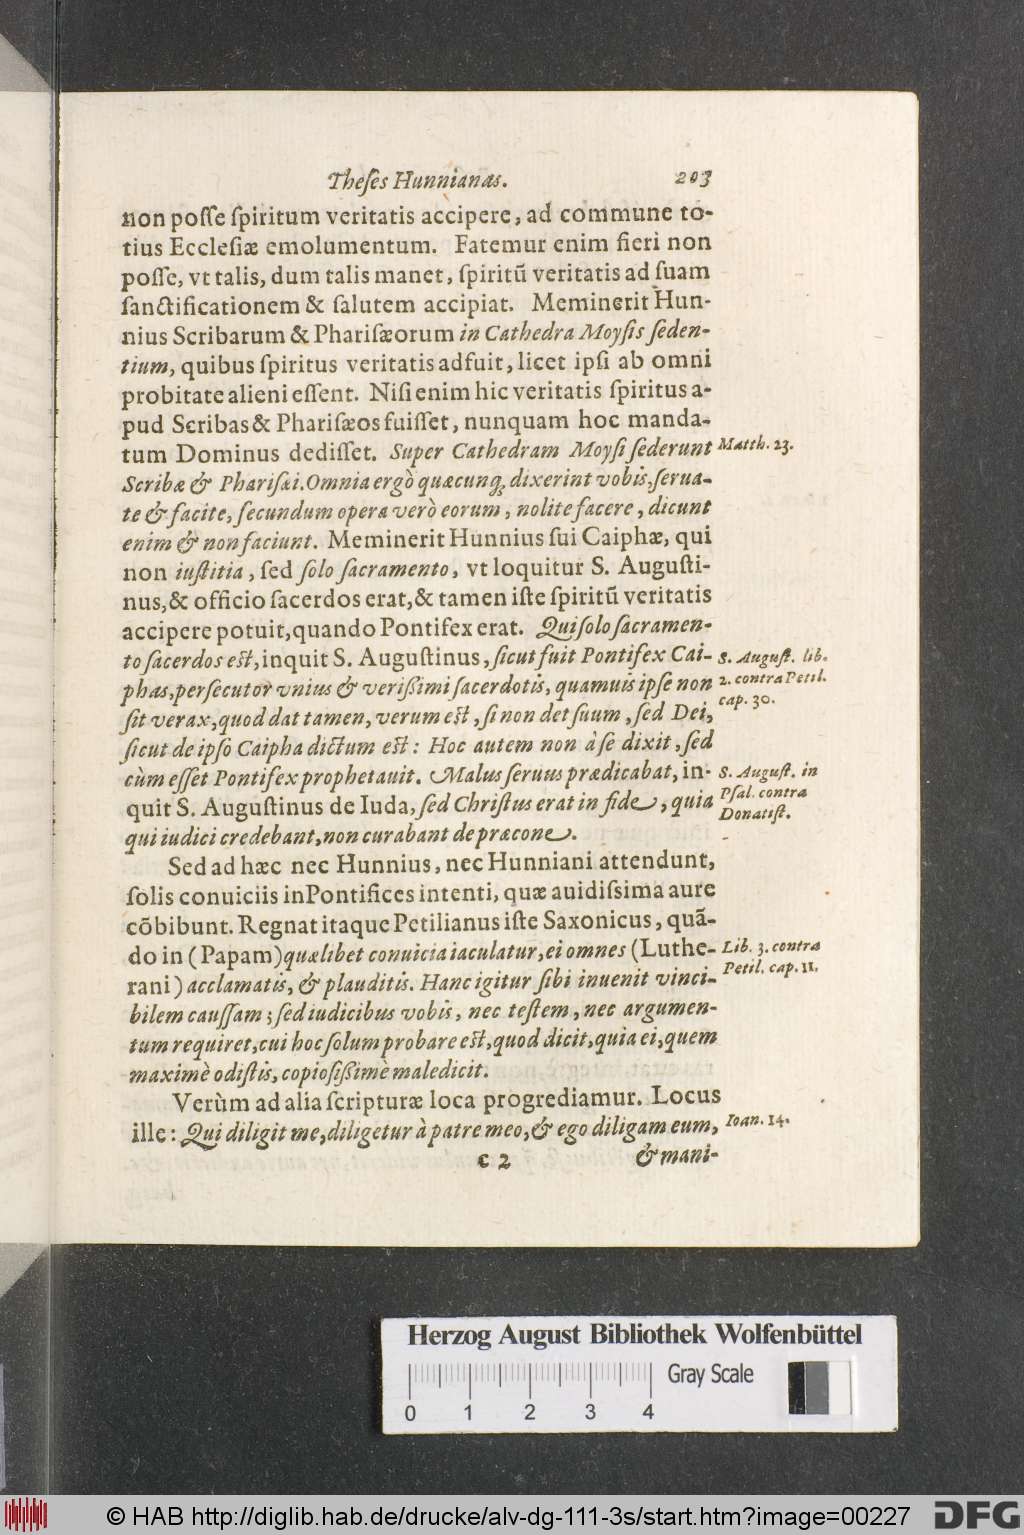 Theſes Hunnianas. 203
non poſſe ſpiritum veritatis accipere, ad commune to-
tius Eccleſiæ emolumentum. Fatemur enim fieri non
poſſe, vt talis, dum talis manet, ſpiritũ veritatis ad ſuam
ſanctificationem & ſalutem accipiat. Meminerit Hun-
nius Scribarum & Phariſæorum in Cathedra Moyſis ſeden-
tium, quibus ſpiritus veritatis adfuit, licet ipſi ab omni
probitate alieni eſſent. Niſi enim hic veritatis ſpiritus a-
pud Scribas & Phariſæos fuiſſet, nunquam hoc manda-
tum Dominus dediſſet. Super Cathedram Moyſi ſederunt
Matth. 23.
Scribæ & Phariſæi. Omnia ergò quæcunq; dixerint vobis, ſerua-
te & facite, ſecundum opera verò eorum, nolite facere, dicunt
enim & non faciunt. Meminerit Hunnius ſui Caiphæ, qui
non iuſtitia, ſed ſolo ſacramento, vt loquitur S. Auguſti-
nus, & officio ſacerdos erat, & tamen iſte ſpiritũ veritatis
accipere potuit, quando Pontifex erat. Qui ſolo ſacramen-
to ſacerdos eſt, inquit S. Auguſtinus, ſicut fuit Pontifex Cai-
S. Auguſt. lib.
phas, perſecutor vnius & verißimi ſacerdotis, quamuis ipſe non
2. contra Petil.
cap. 30.
ſit verax, quod dat tamen, verum eſt, ſi non det ſuum, ſed Dei,
ſicut de ipſo Caipha dictum eſt: Hoc autem non à ſe dixit, ſed
cùm eſſet Pontifex prophetauit. Malus ſeruus prædicabat, in-
S. Auguſt. in
quit S. Auguſtinus de Iuda, ſed Chriſtus erat in fide, quia
Pſal. contra
Donatiſt.
qui iudici credebant, non curabant de præcone.
Sed ad hæc nec Hunnius, nec Hunniani attendunt,
ſolis conuiciis in Pontifices intenti, quæ auidiſsima aure
cõbibunt. Regnat itaque Petilianus iſte Saxonicus, quã-
do in (Papam) quælibet conuicia iaculatur, ei omnes (Luthe-
Lib. 3. contra
rani) acclamatis, & plauditis. Hanc igitur ſibi inuenit vinci-
Petil. cap. 11.
bilem cauſſam; ſed iudicibus vobis, nec teſtem, nec argumen-
tum requiret, cui hoc ſolum probare eſt, quod dicit, quia ei, quem
maximè odiſtis, copioſißimè maledicit.
Verùm ad alia ſcripturæ loca progrediamur. Locus
ille: Qui diligit me, diligetur à patre meo, & ego diligam eum,
Ioan. 14.
c 2 & mani-
Herzog August Bibliothek Wolfenbüttel
Gray Scale
0 1 2 3 4
© HAB http://diglib.hab.de/drucke/alv-dg-111-3s/start.htm?image=00227
DFG